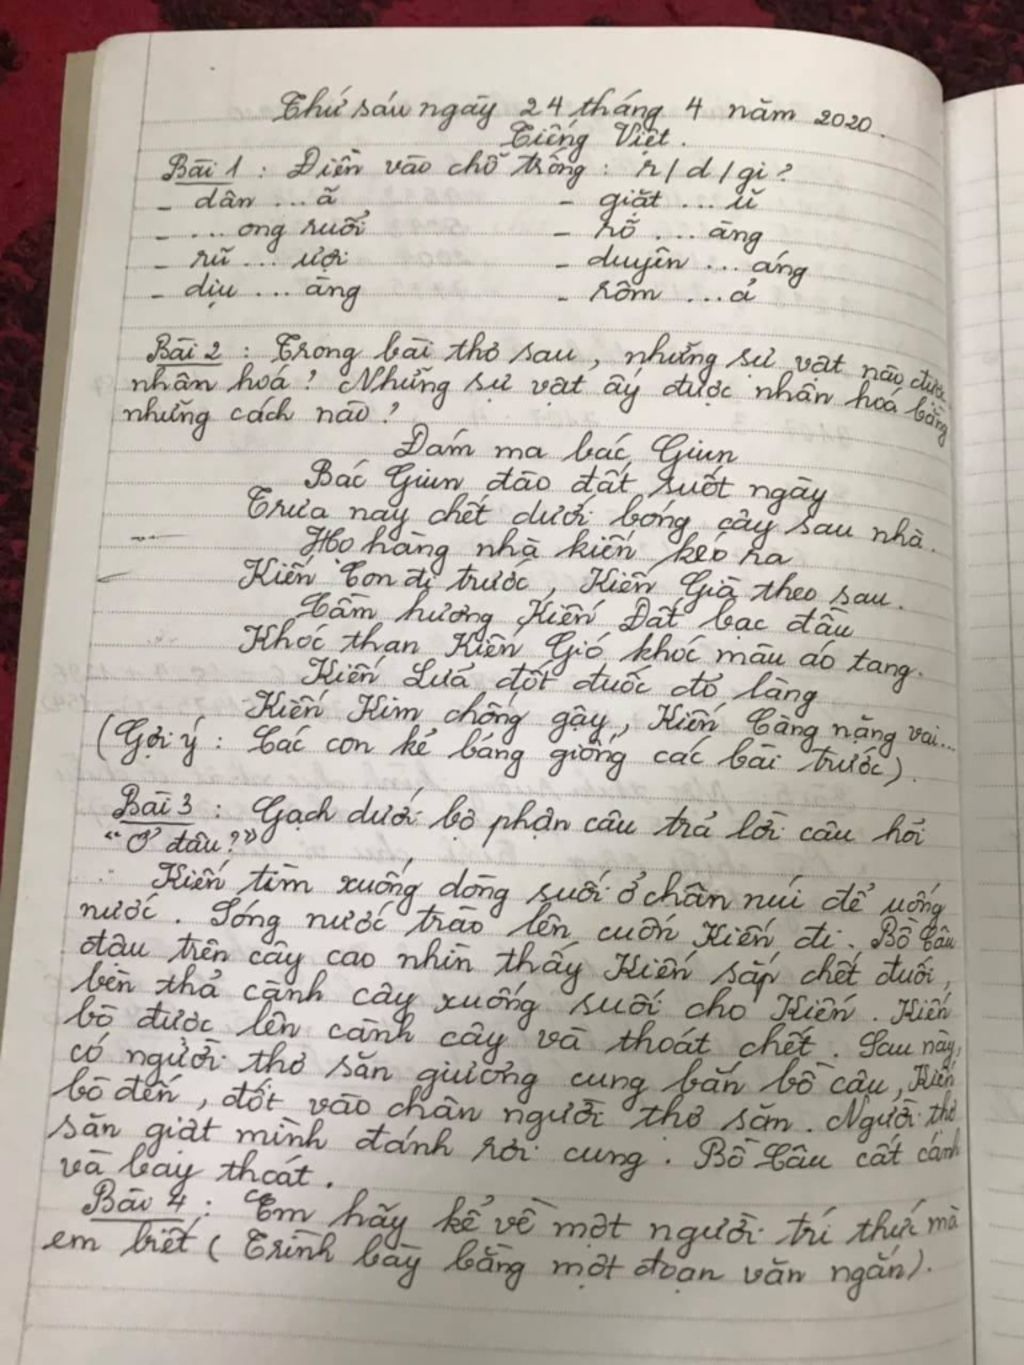 Thứ sáu ngày 24 tháng 4 năm 2020.
Tiếng Việt.
Bài 1 : Điền vào chỗ trống : r / d / gi ?
- dân ... ã - giặt ... ũ
- ... ong ruổi - rỗ ... àng
- rũ ... ượi - duyên ... áng
- dịu ... àng - rôm ... ả
Bài 2 : Trong bài thơ sau , những sự vật nào được
nhân hoá ? Những sự vật ấy được nhân hoá bằng
những cách nào ?
Đám ma bác Giun
Bác Giun đào đất suốt ngày
Trưa nay chết dưới bóng cây sau nhà.
Họ hàng nhà kiến kéo ra
Kiến Con đi trước , Kiến Già theo sau.
Cầm hương Kiến Đất bạc đầu
Khóc than Kiến Gió khoác màu áo tang.
Kiến Lửa đốt đuốc đỏ làng
Kiến Kim chống gậy, Kiến Càng nặng vai...
(Gợi ý : Các con kẻ bảng giống các bài trước).
Bài 3 : Gạch dưới bộ phận câu trả lời câu hỏi
“Ở đâu?”
Kiến tìm xuống dòng suối ở chân núi để uống
nước . Sóng nước trào lên cuốn Kiến đi . Bồ Câu
đậu trên cây cao nhìn thấy Kiến sắp chết đuối,
bèn thả cành cây xuống suối cho Kiến . Kiến
bò được lên cành cây và thoát chết . Sau này,
có người thợ săn giương cung bắn bồ câu , Kiến
bò đến , đốt vào chân người thợ săn . Người thợ
săn giật mình đánh rơi cung . Bồ Câu cất cánh
và bay thoát .
Bài 4 : Em hãy kể về một người trí thức mà
em biết ( Trình bày bằng một đoạn văn ngắn).